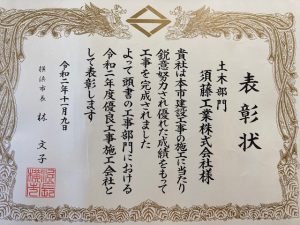 表彰状
土木部門
須藤工業株式会社様
貴社は本市建設工事の施工に当たり
鋭意努力され優れた成績をもって
工事を完成されました
よって頭書の工事部門における
令和二年度優良工事施工会社と
して表彰します
令和二年十一月九日
横浜市長 林 文子